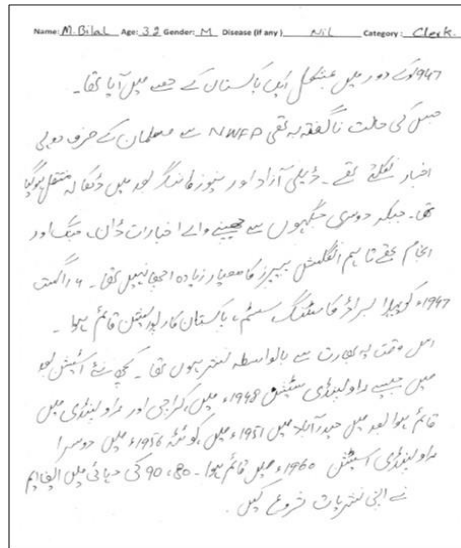 Name: M. Bilal Age: 32 Gender: M Disease (if any) Nil Category: Clerk.
1947ء کے دور میں بمشکل ایک پاکستان کے حصے میں آیا تھا۔
جس کی حالت ناگفتہ بہ تھی NWFP سے مسلمان کے صرف دو ہی
اخبار نکلتے تھے۔ ڈیلی آزاد اور بعد میں ڈھاکہ منتقل ہوگیا
تھا۔ جبکہ دوسری جگہوں سے چھپنے والے اخبارات ڈان، جنگ اور
انجام تھے تاہم انگلش پیپرز کا معیار زیادہ اچھا نہیں تھا۔ 14 اگست
1947ء کو پہلا براڈ کاسٹنگ سسٹم، پاکستان کارپوریشن قائم ہوا۔
اس وقت یہ بھارت سے بالواسطہ نشر ہوں تھا۔ کچھ نئے اسٹیشن بعد
میں جیسے راولپنڈی سٹیشن 1948ء میں، کراچی اور راولپنڈی میں
قائم ہوا بعد میں حیدرآباد میں 1951ء میں، کوئٹہ 1956ء میں دوسرا
راولپنڈی اسٹیشن 1960ء میں قائم ہوا۔ 80، 90 کی دہائی میں ایف ایم
نے اپنی نشریات شروع کیں۔